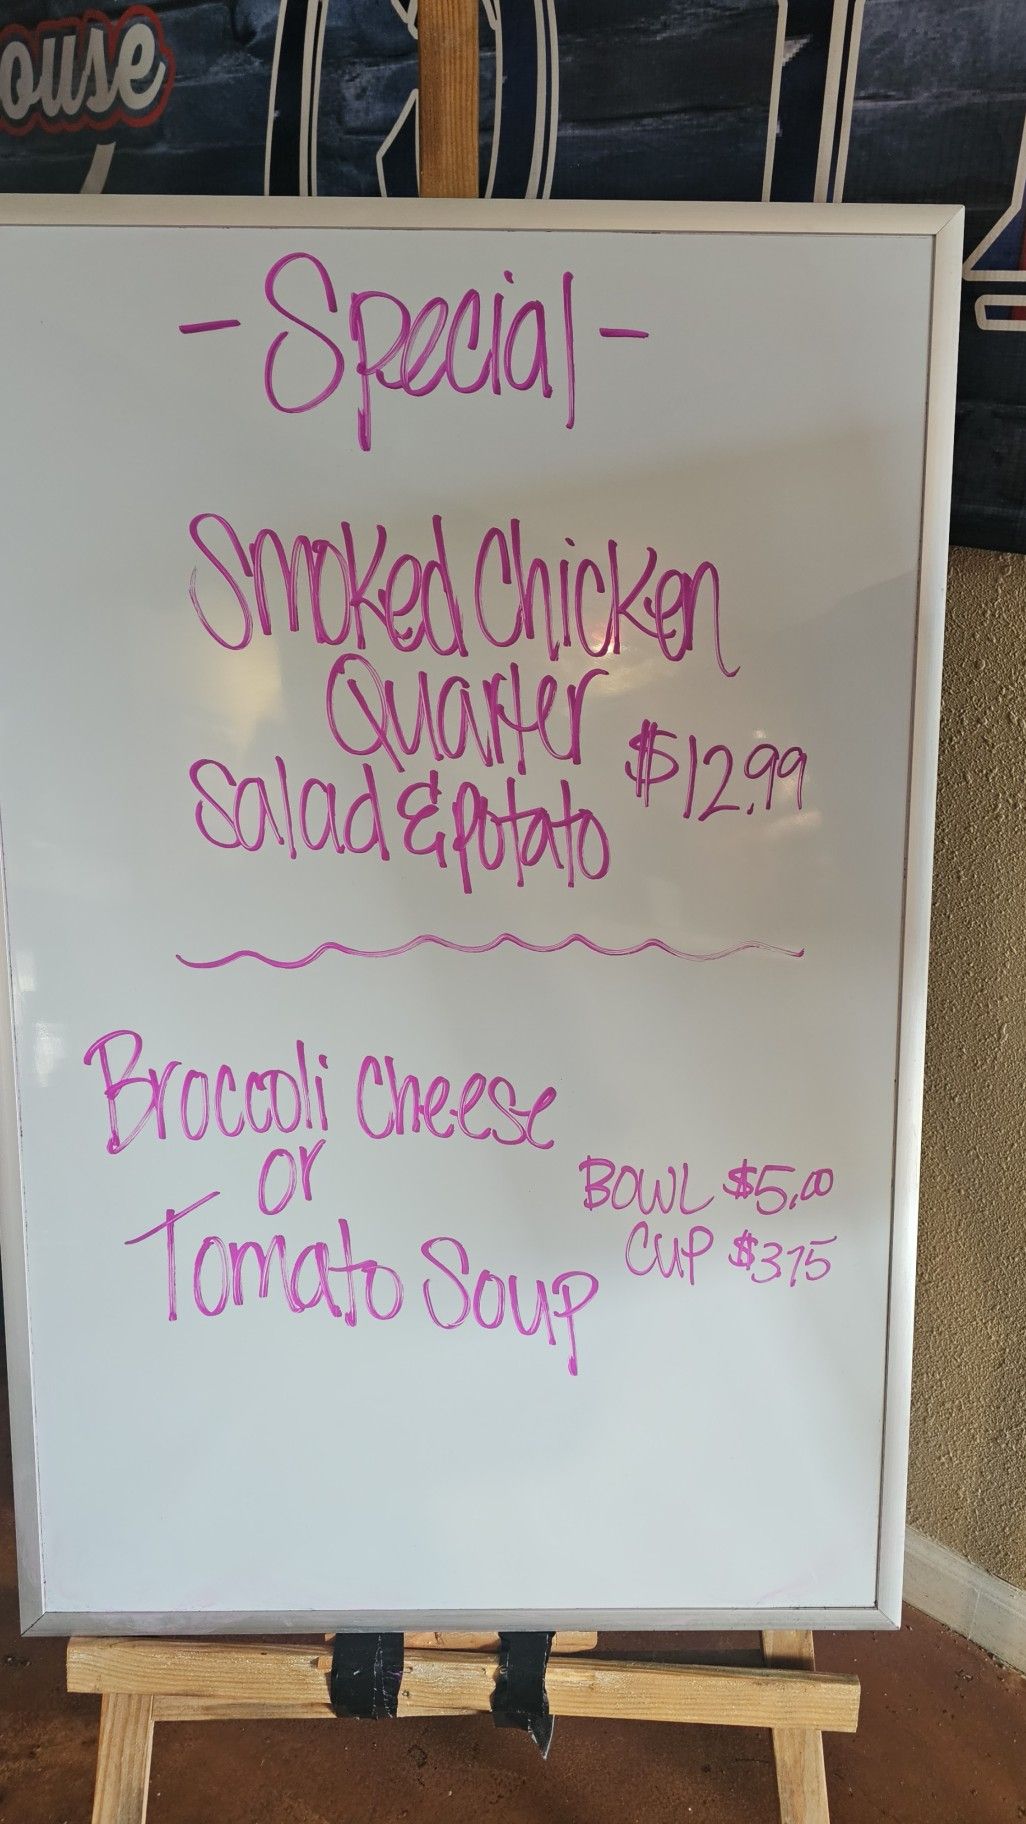 ouse
- Special -
Smoked Chicken
Quarter
Salad & Potato $12.99
Broccoli Cheese
or
Tomato Soup
BOWL $5.00
CUP $3.75